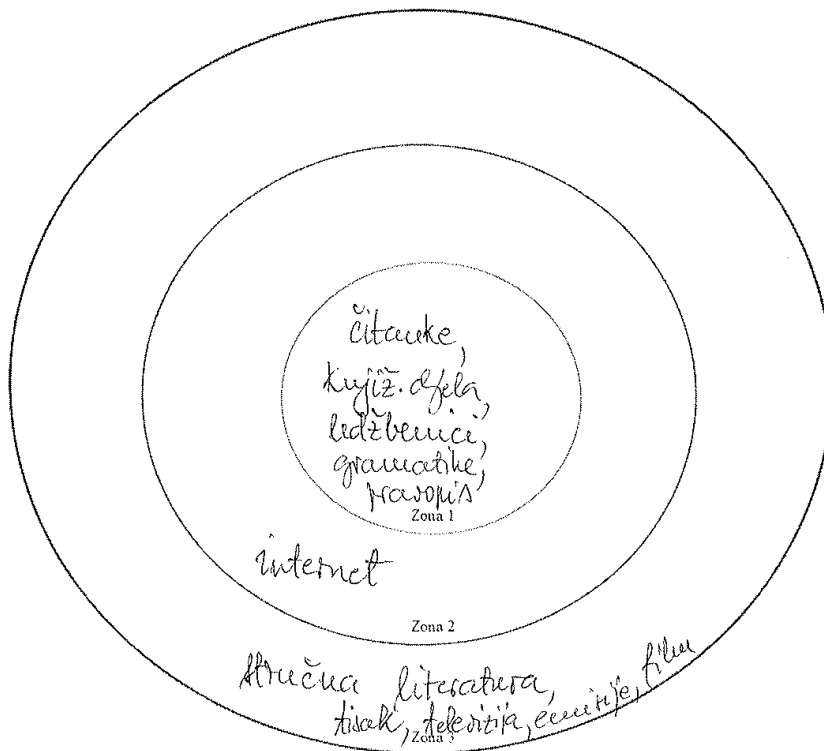 čitanke,
knjiž. djela,
udžbenici,
gramatike,
pravopis
Zona 1
internet
Zona 2
stručna literatura,
tisak, televizija, emisije, film
Zona 3